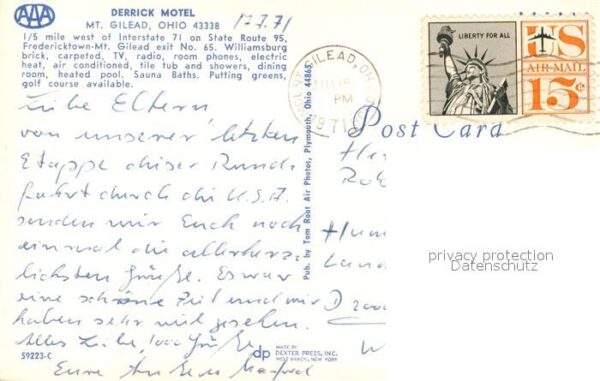 AAA
DERRICK MOTEL
MT. GILEAD, OHIO 43338
17.7.71
1/5 mile west of Interstate 71 on State Route 95,
Fredericktown-Mt. Gilead exit No. 65. Williamsburg
brick, carpeted, TV, radio, room phones, electric
heat, air conditioned, tile tub and showers, dining
room, heated pool. Sauna Baths. Putting greens,
golf course available.
Liebe Eltern
von unserer letzten
Etappe dieser Rund-
fahrt durch die U.S.A.
senden wir Euch noch
einmal die allerherz-
lichsten Grüße. Es war
eine schöne Zeit und wir
haben sehr viel gesehen.
Alles Liebe 1000 Grüße
Eure
Manfred
59223-C
Pub. by Tom Root Air Photos, Plymouth, Ohio 44865
dp
MADE BY
DEXTER PRESS, INC.
WEST NYACK, NEW YORK
GILEAD, OH
PM
1971
LIBERTY FOR ALL
US
AIR MAIL
15¢
Post Card
privacy protection
Datenschutz